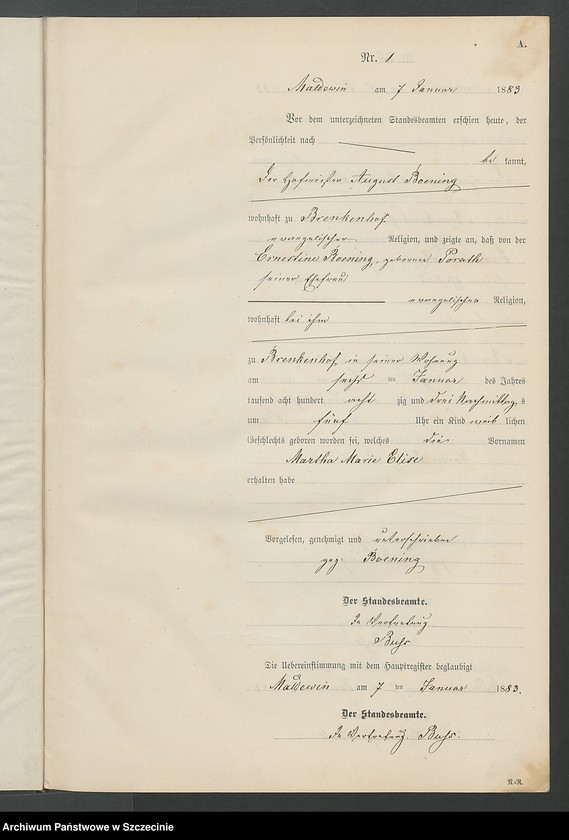 A.
Nr. 1
Maldewin am 7 Januar 1883
Vor dem unterzeichneten Standesbeamten erschien heute, der
Persönlichkeit nach
be kannt,
der Hofmeister August Boening
wohnhaft zu Brenkenhof
evangelischer Religion, und zeigte an, daß von der
Ernestine Boening, geborenen Porath
seiner Ehefrau
evangelischen Religion,
wohnhaft bei ihm
zu Brenkenhof in seiner Wohnung
am sechs ten Januar des Jahres
tausend acht hundert acht zig und drei Nachmittags
um fünf Uhr ein Kind weib lichen
Geschlechts geboren worden sei, welches die Vornamen
Martha Marie Elise
erhalten habe
Vorgelesen, genehmigt und unterschrieben
gez: Boening
Der Standesbeamte.
In Vertretung
Die Uebereinstimmung mit dem Hauptregister beglaubigt
Maldewin am 7 ten Januar 1883.
Der Standesbeamte.
In Vertretung.
R.-R.
Archiwum Państwowe w Szczecinie